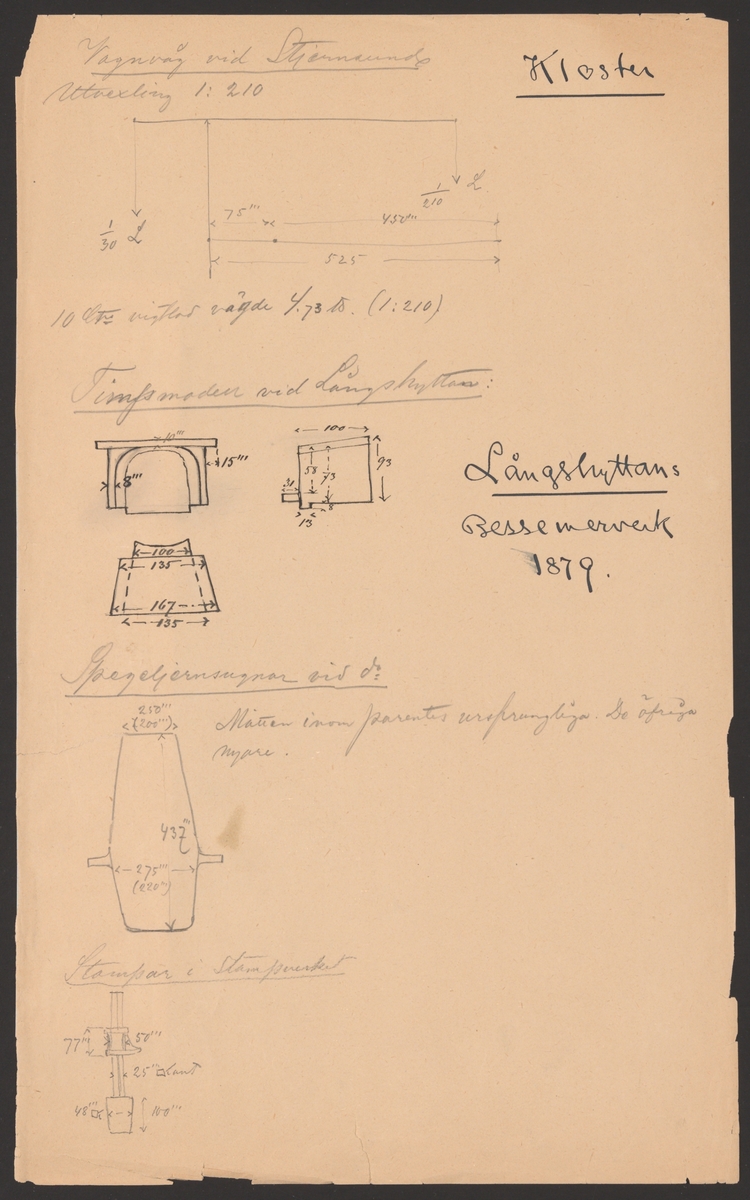 Vagnvåg vid Stjernsund
Kloster
Utvexling 1: 210
1/30 L
1/210 L
75''' 450'''
525
10 Ctr vigtlod vägde 4.73 ℔. (1:210)
Timpsmodell vid Långshyttan:
10'''
15'''
8'''
100
58
73
93
31
8
13
100
135
167
135
Långshyttans
Bessemerverk
1879.
Spegeljernsugnar vid do:
250'''
(200''')
Måtten inom parentes ursprungliga. De öfriga
nyare.
437'''
275'''
(220''')
Stampar i Stampverket
77''' 50'''
25''' □kant
48'''□ 100'''